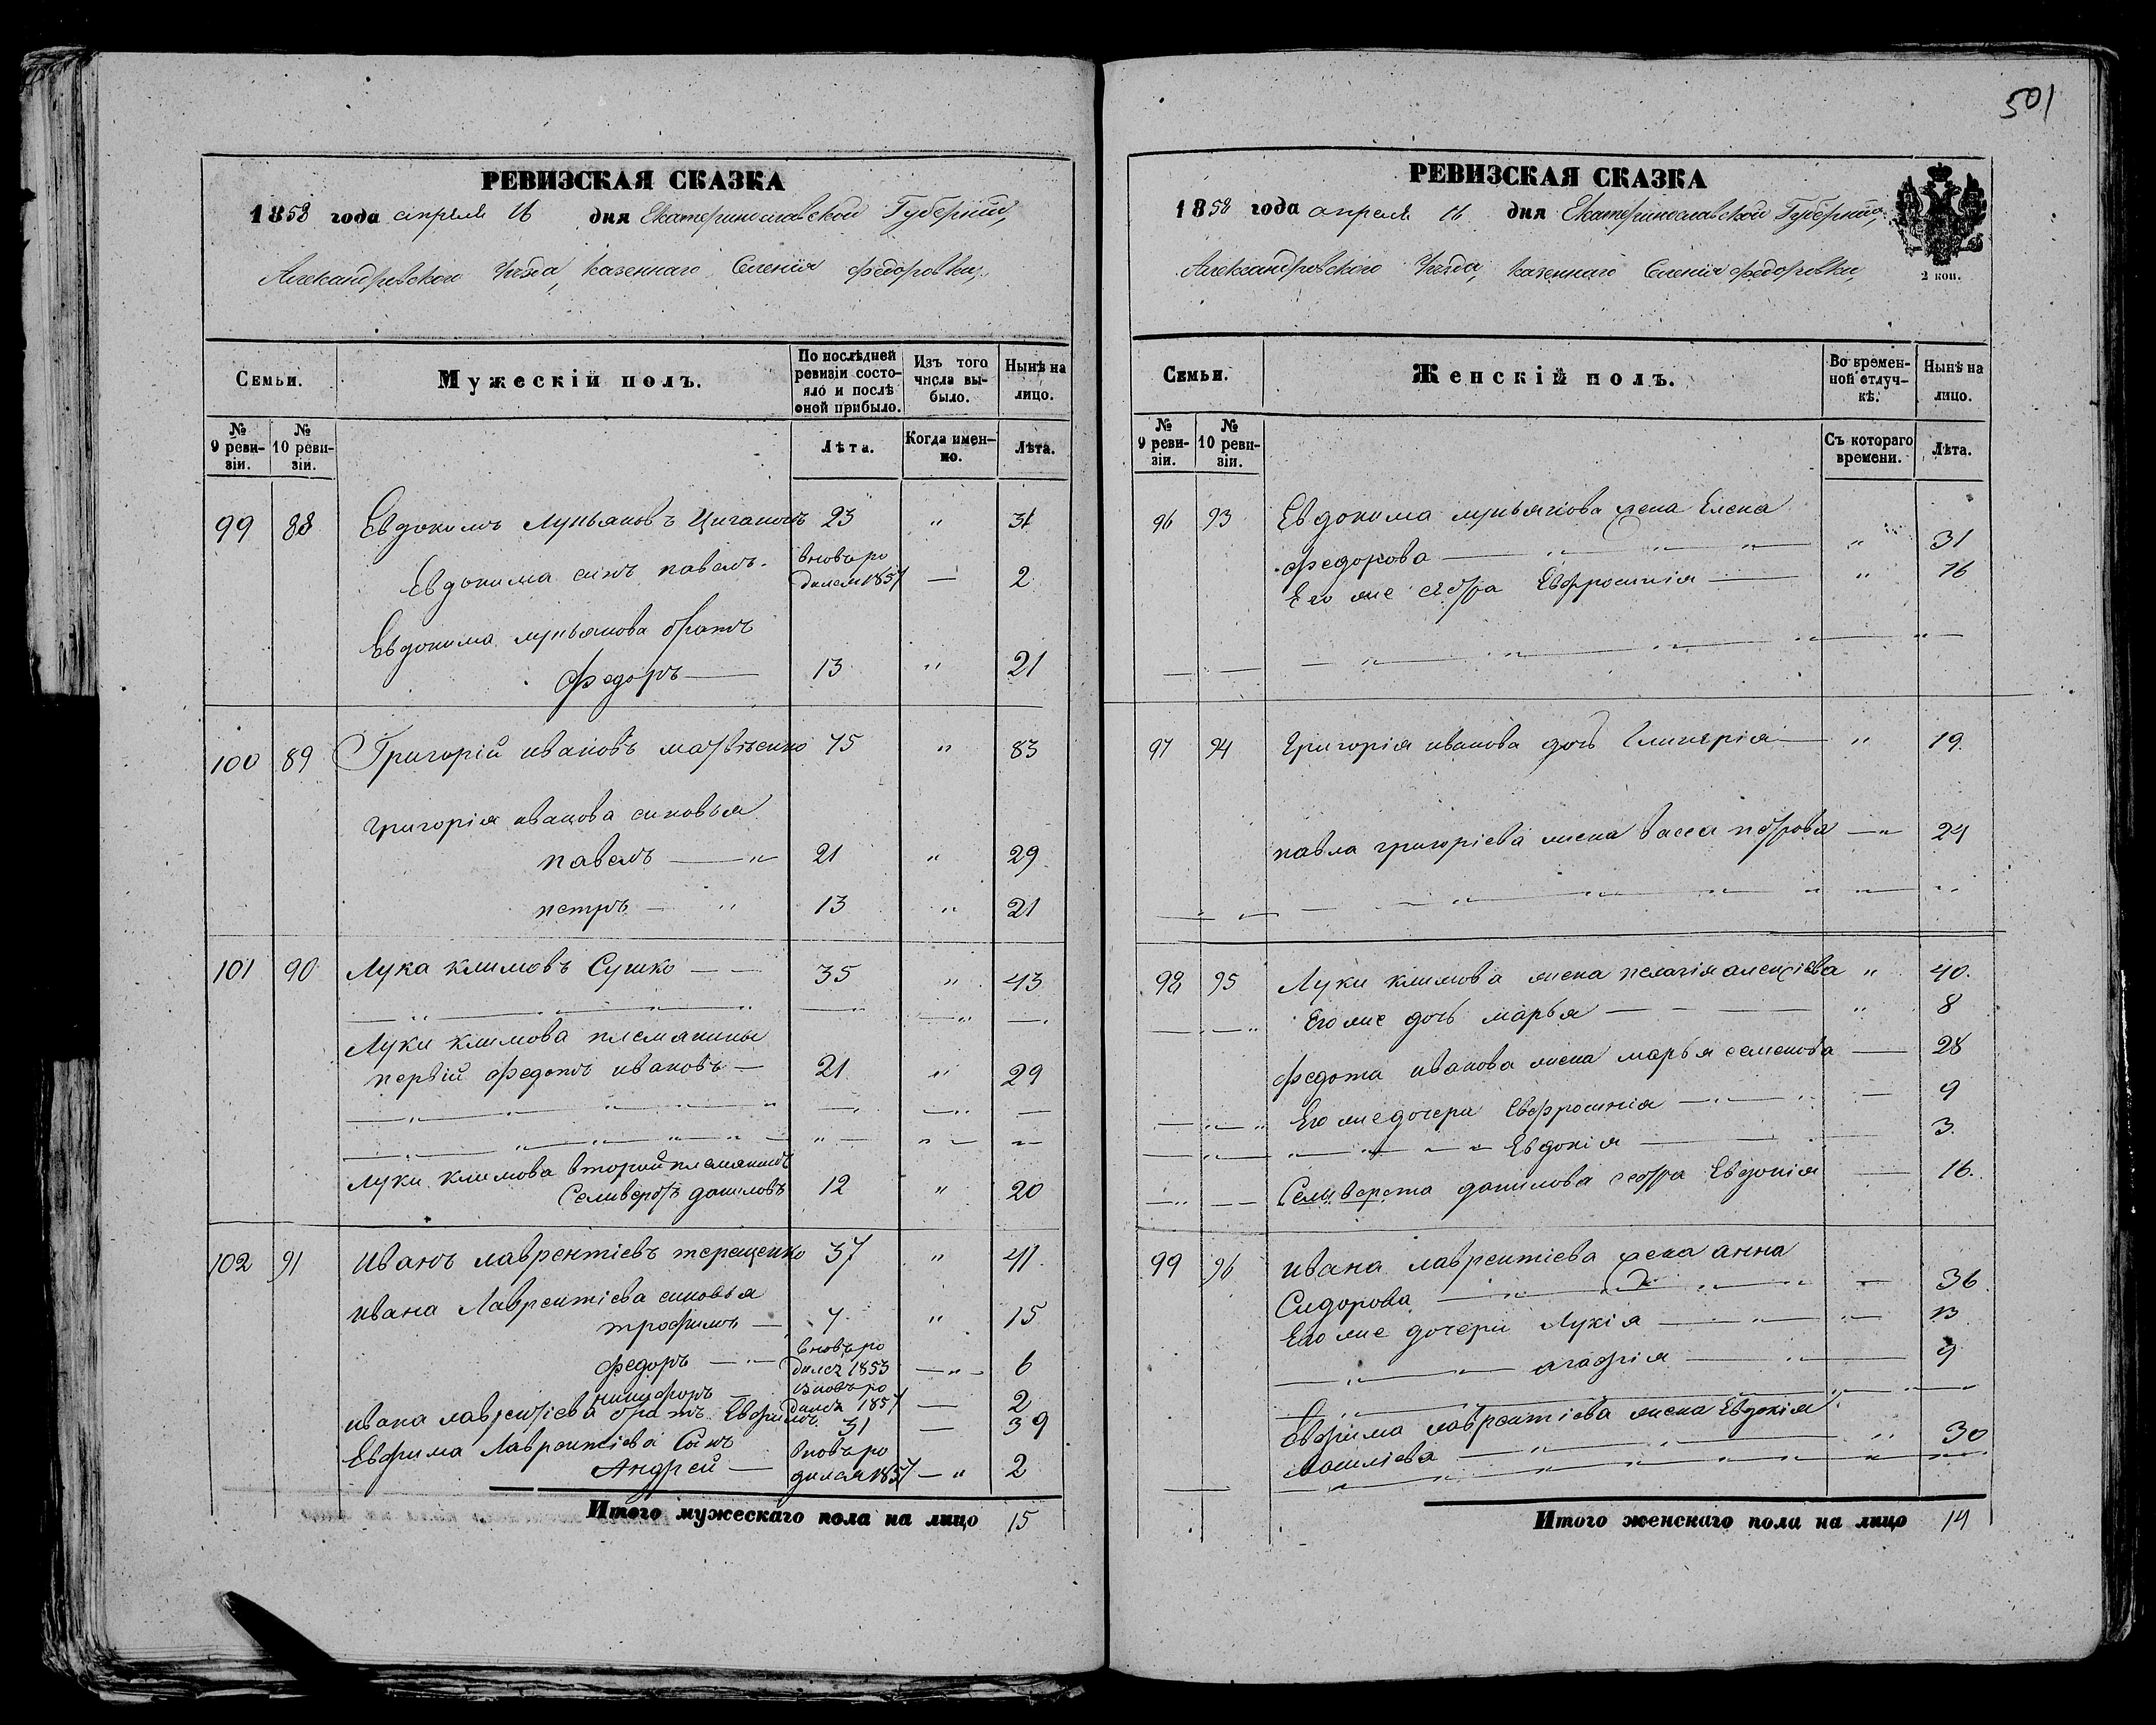 501
РЕВИЗСКАЯ СКАЗКА
1858 года апреля 16 дня Екатеринославской Губерніи,
Александровскаго Уезда, казеннаго Селенія Федоровки,
Семьи.
Мужескій полъ.
По послѣдней ревизіи состояло и послѣ оной прибыло.
Изъ того числа выбыло.
Нынѣ на лицо.
№ 9 ревизіи.
№ 10 ревизіи.
Лѣта.
Когда именно.
Лѣта.
99 88 Евдокимъ Лукьяновъ Циганокъ 23 " 31
Евдокима синъ павелъ. вновь ро
дился 1857 — 2
Евдокима лукьянова братъ
Федоръ — 13 " 21
100 89 Григорій ивановъ матвѣенко 75 " 83
григорія иванова синовья
павелъ — " 21 " 29
петръ — " 13 " 21
101 90 Лука климовъ Сушко — — 35 " 43
Луки климова племяники
первій Федотъ ивановъ — 21 " 29
Луки климова второй племяникъ
Селиверстъ даниловъ 12 " 20
102 91 иванъ лаврентіевъ терещенко 37 " 41
ивана Лаврентіева синовья
трофимъ — 7 " 15
вновь ро
федоръ — дился 1853 — " — 6
вновь ро
никифоръ — дился 1857 — 2
ивана лаврентіева братъ Евфимъ 31 — 39
Евфима Лаврентіева Синъ вновь ро
Андрей — дился 1857 — " 2
Итого мужескаго пола на лицо 15
РЕВИЗСКАЯ СКАЗКА
1858 года апреля 16 дня Екатеринославской Губерніи,
Александровскаго Уезда, казеннаго Селенія Федоровки,
2 коп.
Семьи.
Женскій полъ.
Во временной отлучкѣ.
Нынѣ на лицо.
№ 9 ревизіи.
№ 10 ревизіи.
Съ котораго времени.
Лѣта.
96 93 Евдокима лукьянова жена Елена
федорова — " " " " 31
Его же сестра Евфросинія — " 16
97 94 григорія иванова дочь Гликерія — " 19
павла григоріева жена васса петрова — " 24
98 95 Луки климова жена пелагія алексіева " 40.
Его же дочь марья — — — " 8
федота иванова жена марья семенова — 28
Его же дочери Евфросинія — " — 9
" " " Евдокія — 3.
Селиверста данилова сестра Евдокія — 16.
99 96 ивана лаврентіева жена анна
Сидорова — " " " — 36
Его же дочери Лукія — " " — 13
агафія — " — 9
Евфима лаврентіева жена Евдокія
василіева — " " " 30
Итого женскаго пола на лицо 14